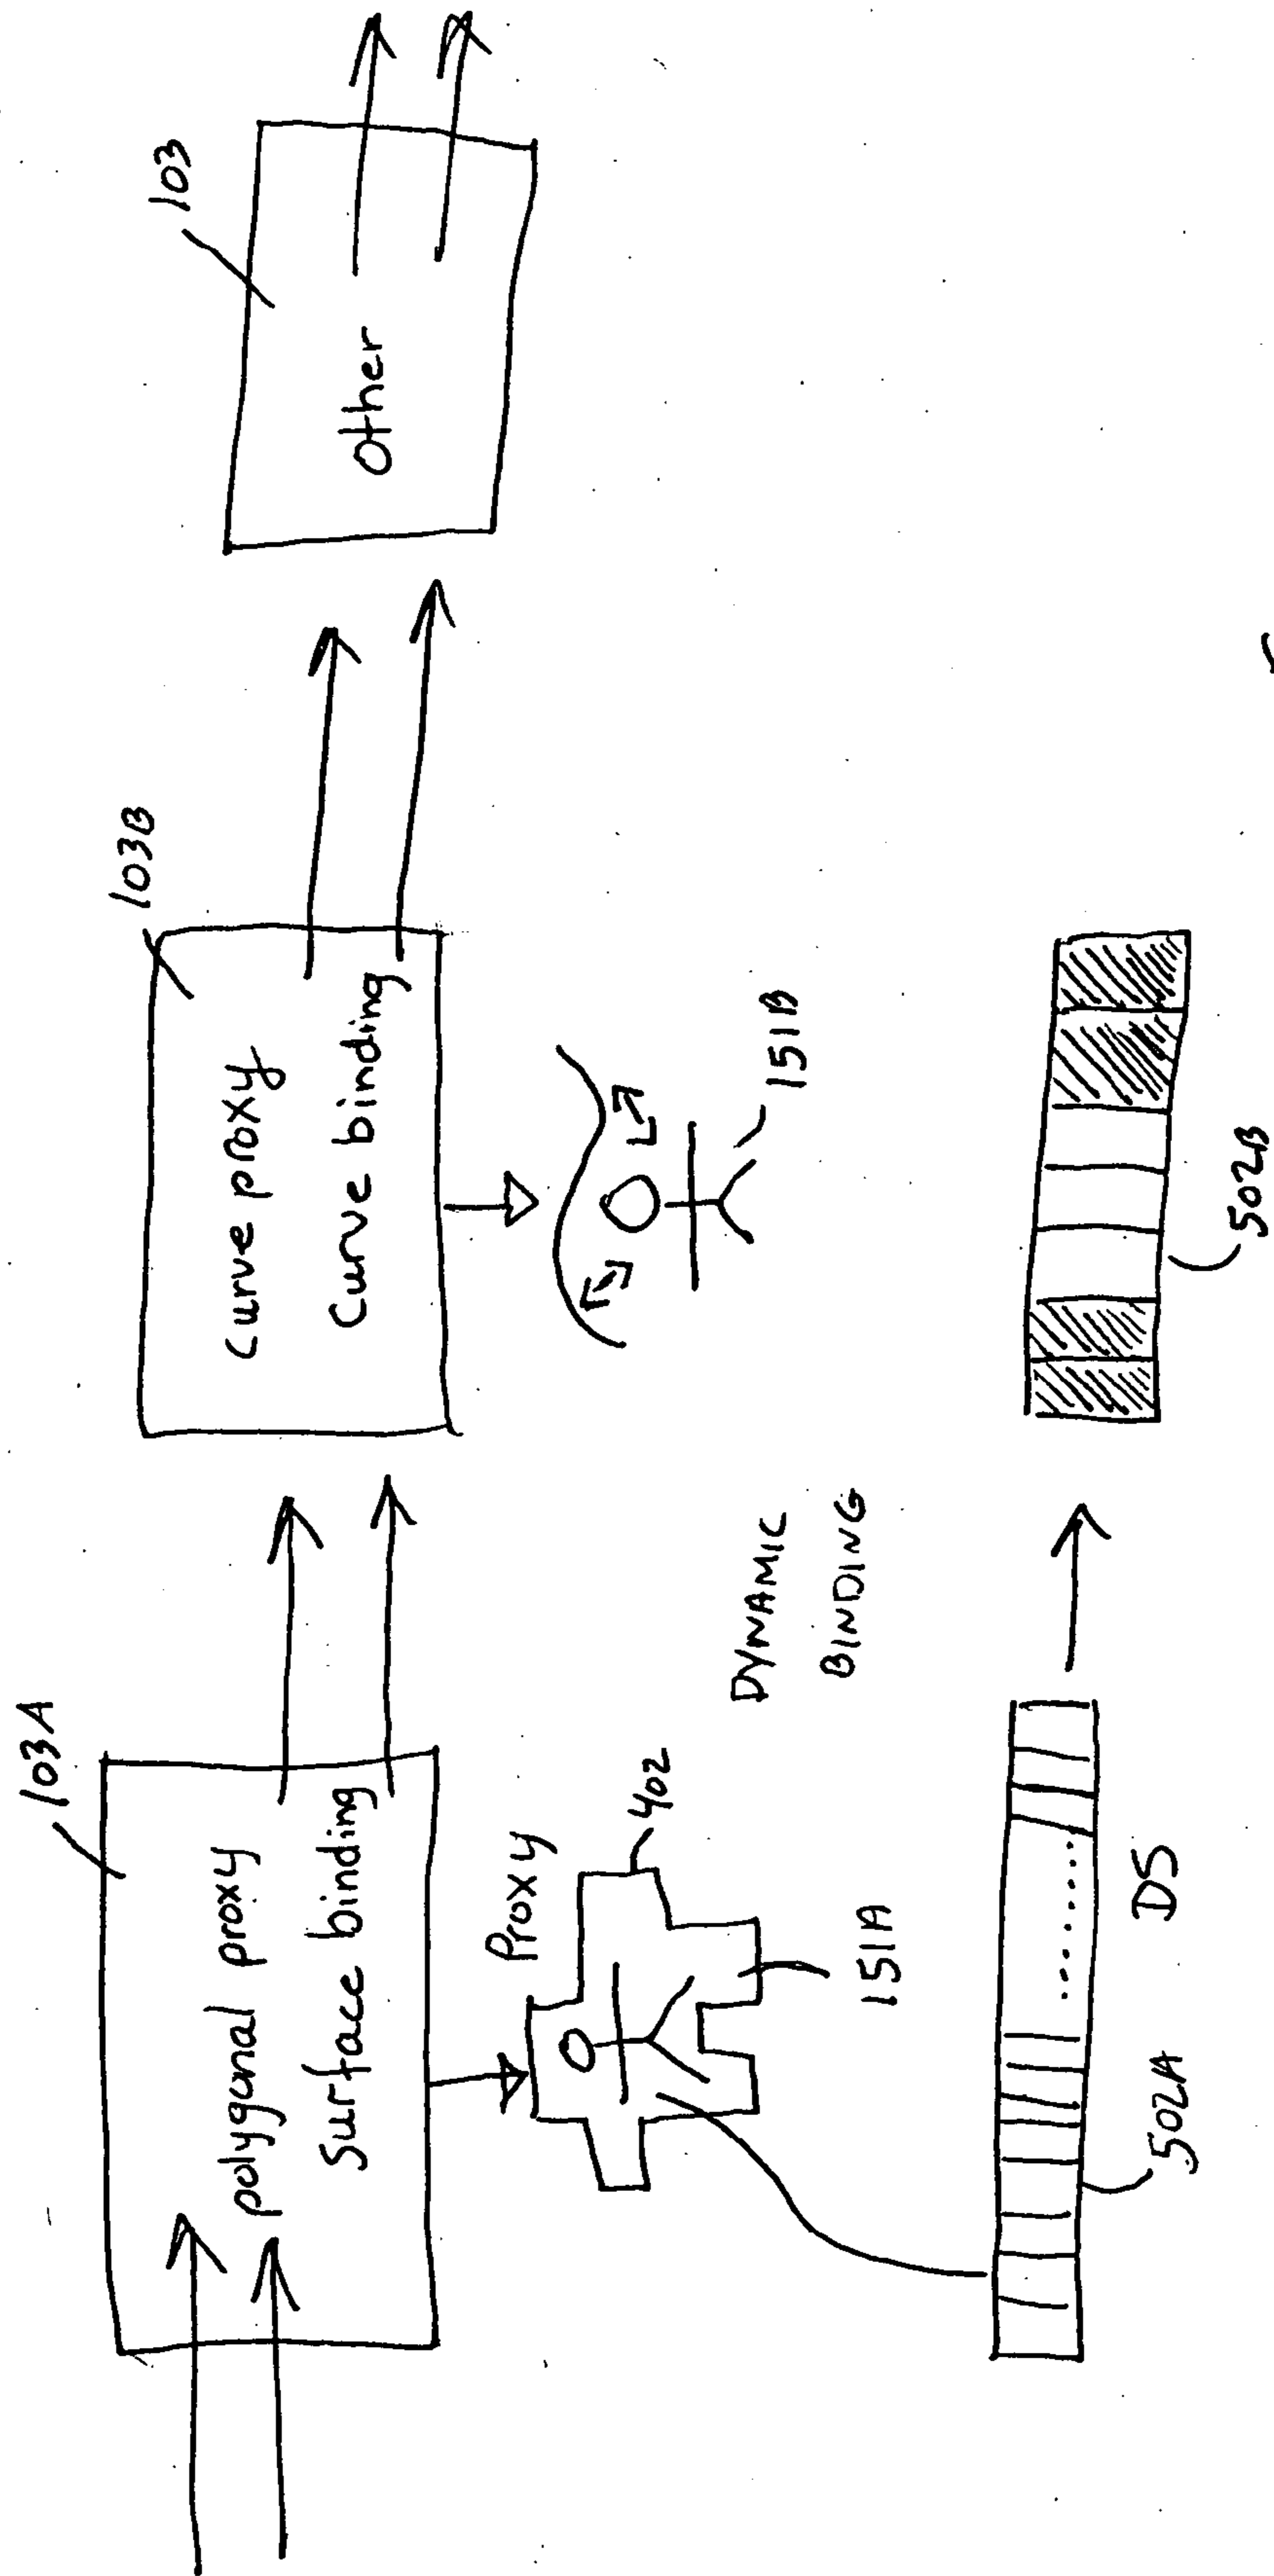 103A
polygonal proxy
Surface binding
Proxy
402
151A
502A
DS
DYNAMIC
BINDING
103B
Curve proxy
Curve binding
151B
502B
103
Other